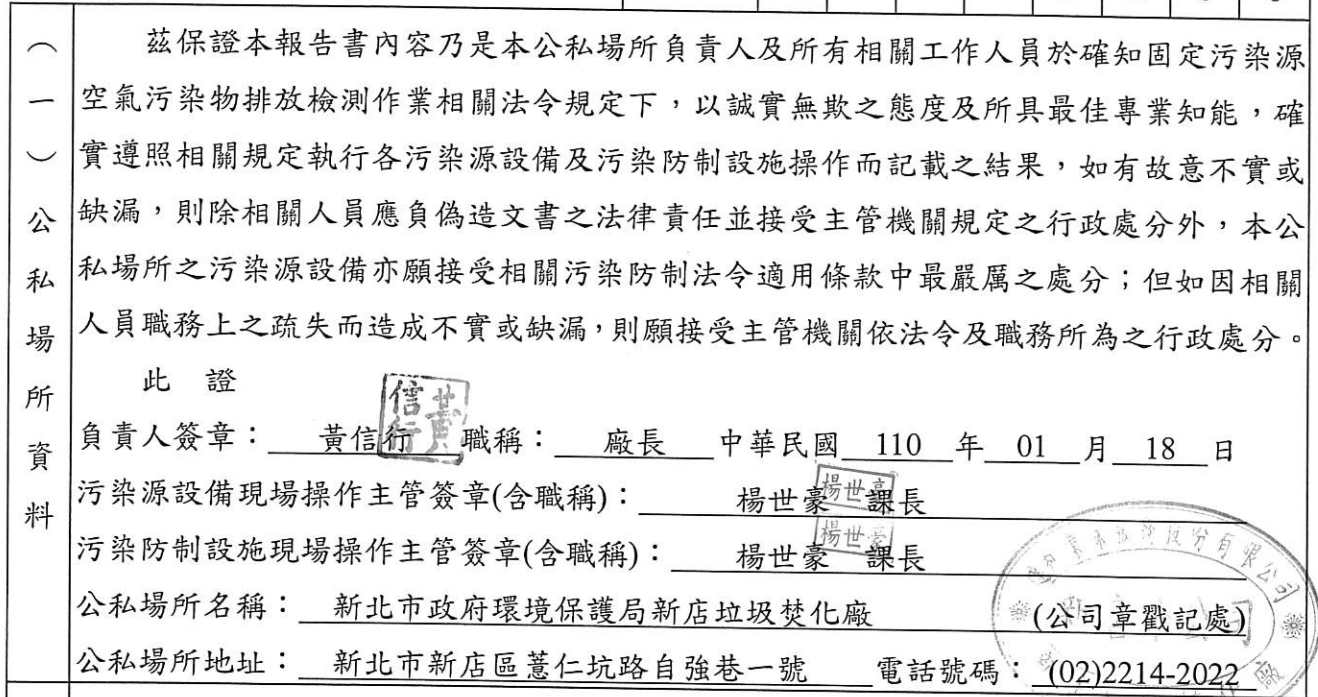 (一)公私場所資料
茲保證本報告書內容乃是本公私場所負責人及所有相關工作人員於確知固定污染源
空氣污染物排放檢測作業相關法令規定下，以誠實無欺之態度及所具最佳專業知能，確
實遵照相關規定執行各污染源設備及污染防制設施操作而記載之結果，如有故意不實或
缺漏，則除相關人員應負偽造文書之法律責任並接受主管機關規定之行政處分外，本公
私場所之污染源設備亦願接受相關污染防制法令適用條款中最嚴厲之處分；但如因相關
人員職務上之疏失而造成不實或缺漏，則願接受主管機關依法令及職務所為之行政處分。
此 證
負責人簽章： 黃信行 職稱： 廠長 中華民國 110 年 01 月 18 日
黃信行
污染源設備現場操作主管簽章(含職稱)： 楊世豪 課長
楊世豪
污染防制設施現場操作主管簽章(含職稱)： 楊世豪 課長
楊世豪
公私場所名稱： 新北市政府環境保護局新店垃圾焚化廠 (公司章戳記處)
公私場所地址： 新北市新店區薏仁坑路自強巷一號 電話號碼： (02)2214-2022
股份有限公司